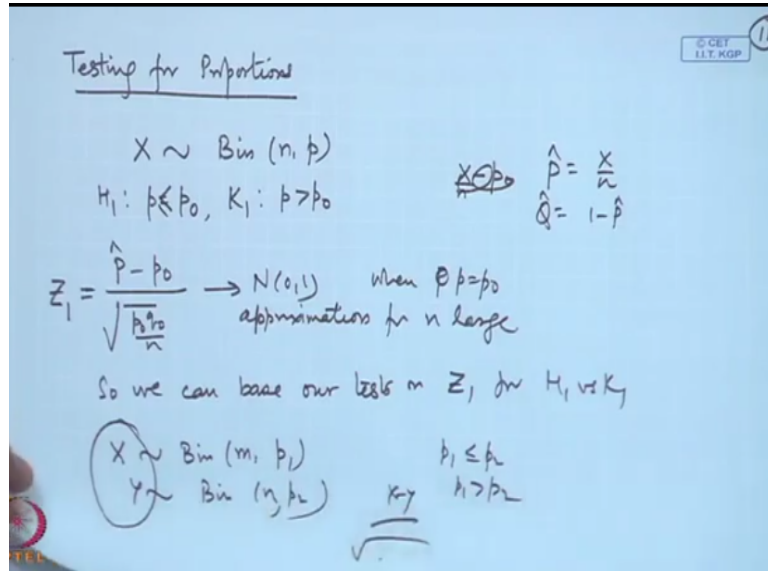 © CET
I.I.T. KGP
11
Testing for Proportions
X ~ Bin (n, p)
H₁: p ≤ p₀, K₁: p > p₀
P̂ = X/n
Q̂ = 1 - P̂
Z₁ = (P̂ - p₀) / √(p₀q₀/n) → N(0,1) when p = p₀
approximation for n large
So we can base our tests on Z₁ for H₁ vs K₁
X ~ Bin (m, p₁) p₁ ≤ p₂
Y ~ Bin (n, p₂) p₁ > p₂
X-Y
√
PTEL